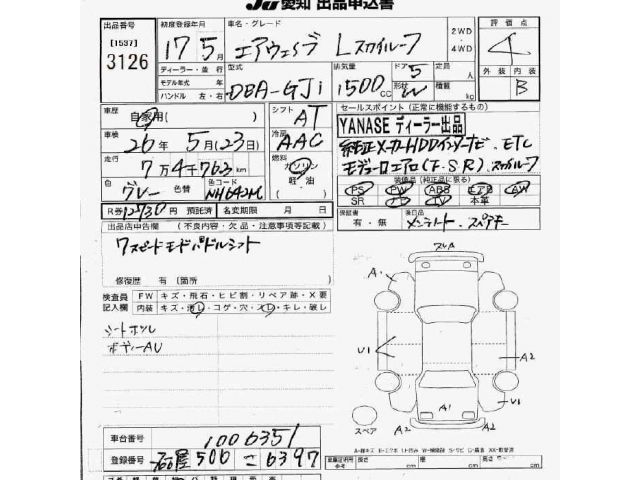 JU 愛知 出品申込書
出品番号 初度登録年月 車名・グレード 2WD ・4WD 評価点
[1537] 3126 17年 5月 エアウェイブ Lスカイルーフ 4
ディーラー・並行 型式 排気量 ドア 5 定員 人 外装 内装
モデル年式 年 DBA-GJ1 1500cc 形状 W 積載 kg B
ハンドル 左・右
車歴 自家用( ) シフト AT セールスポイント(正常に機能するもの)
車検 26年 5月(23日) 冷房 AAC YANASE ディーラー出品
走行 7万4千763km 燃料 ガソリン 軽・油 純正メーカーHDDインターナビ、ETC
モデューロエアロ(F.S.R)、スカイルーフ
色 グレー 色替 色コード NH642M 装備品(純正品に限る)
PS PW ABS エアB AW
R券 12730円 預託済 名変期限 月 日 SR ナビ TV 本革
出品店申告欄 (不良内容・欠品・注意事項等記載) 保証書 有・無 後日品 メンテノート、スペアキー
7スピードモードパドルシフト
修復歴 有(箇所
検査員記入欄 FW キズ・飛石・ヒビ割・リペア跡・X要
内装 キズ・汚レ・コゲ・穴・スレ・キレ・破レ
シートホソレ
ボディーAU
フルA
A1
U1 A2
U1
A1
A2
スペア
車台番号 1006351
登録番号 名古屋 500 こ 6397